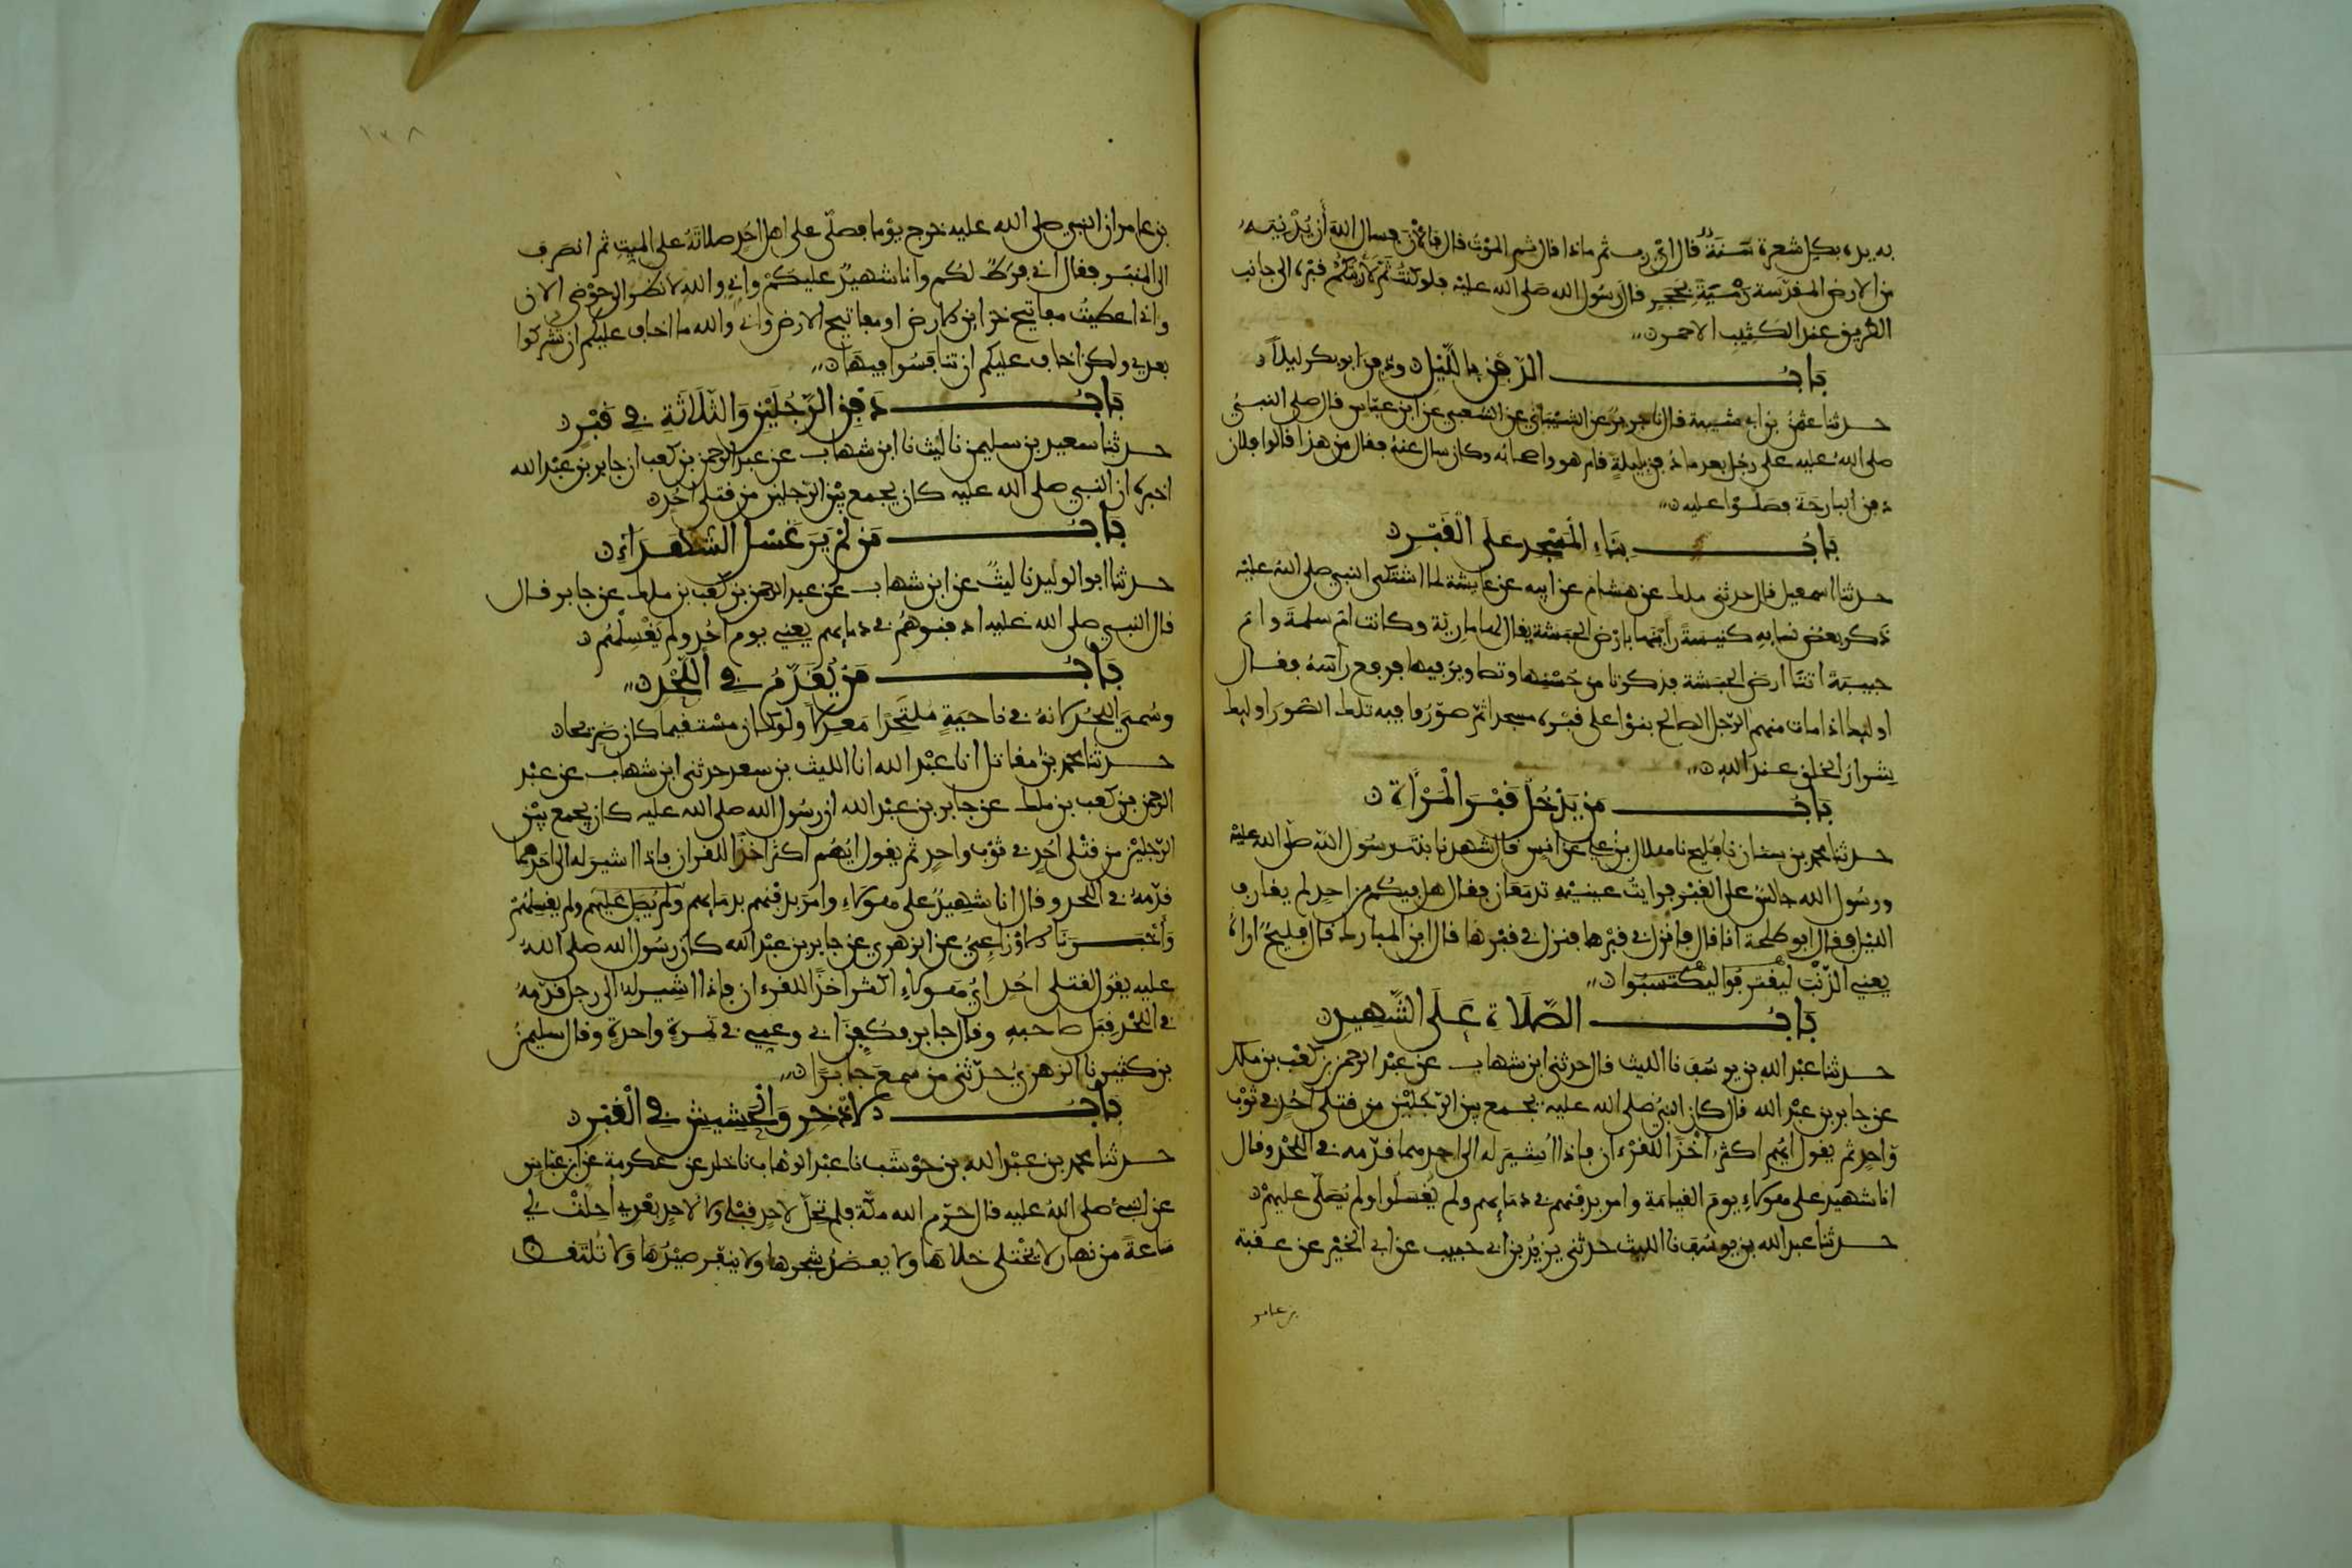 به يده بكل شعرة سنة قال اي رب ثم ماذا قال ثم الموت قال فالان فسال الله أن يدنيه
من الارض المقدسة رمية بحجر قال رسول الله صلى الله عليه فلو كنت ثم لأريتكم قبره الى جانب
الطريق عند الكثيب الاحمر
باب الدفن بالليل ودفن ابو بكر ليلا
حدثنا عثمن بن ابي شيبة قال نا جرير عن الشيباني عن الشعبي عن ابن عباس قال صلى النبي
صلى الله عليه على رجل بعد ما دفن بليلة قام هو واصحابه وكان سال عنه فقال من هذا قالوا فلان
دفن البارحة فصلوا عليه
باب بناء المسجد على القبر
حدثنا اسمعيل قال حدثني ملك عن هشام عن ابيه عن عايشة لما اشتكى النبي صلى الله عليه
ذكر بعض نسايه كنيسة رأينها بارض الحبشة يقال لها مارية وكانت ام سلمة وام
حبيبة اتتا ارض الحبشة فذكرتا من حسنها وتصاوير فيها فرفع رأسه فقال
اوليك اذا مات منهم الرجل الصالح بنوا على قبره مسجدا ثم صوروا فيه تلك الصور اوليك
شرار الخلق عند الله
باب من يدخل قبر المرأة
حدثنا محمد بن سنان نا فليح نا هلال بن علي عن انس قال شهدنا بنت رسول الله صلى الله عليه
ورسول الله جالس على القبر فرايت عينيه تدمعان فقال هل فيكم من احد لم يقارف
الليلة فقال ابو طلحة انا قال فانزل في قبرها فنزل في قبرها قال ابن المبارك قال فليح اراه
يعني الذنب ليقترفوا ليكتسبوا
باب الصلاة على الشهيد
حدثنا عبد الله بن يوسف نا الليث قال حدثني ابن شهاب عن عبد الرحمن بن كعب بن ملك
عن جابر بن عبد الله قال كان النبي صلى الله عليه يجمع بين الرجلين من قتلى احد في ثوب
واحد ثم يقول ايهم اكثر أخذا للقرءان فاذا أشير له الى احدهما قدمه في اللحد وقال
انا شهيد على هولاء يوم القيامة وامر بدفنهم في دمايهم ولم يغسلوا ولم يصلى عليهم
حدثنا عبد الله بن يوسف نا الليث حدثني يزيد بن ابي حبيب عن ابي الخير عن عقبة
بن عامر
١٣٨
بن عامر ان النبي صلى الله عليه خرج يوما فصلى على اهل احد صلاته على الميت ثم انصرف
الى المنبر فقال اني فرط لكم وانا شهيد عليكم واني والله لانظر الى حوضي الان
واني اعطيت مفاتيح خزاين الارض او مفاتيح الارض واني والله ما اخاف عليكم ان تشركوا
بعدي ولكن اخاف عليكم ان تنافسوا فيها
باب دفن الرجلين والثلاثة في قبر
حدثنا سعيد بن سليمن نا ليث نا ابن شهاب عن عبد الرحمن بن كعب ان جابر بن عبد الله
اخبره ان النبي صلى الله عليه كان يجمع بين الرجلين من قتلى احد
باب من لم ير غسل الشهداء
حدثنا ابو الوليد نا ليث عن ابن شهاب عن عبد الرحمن بن كعب بن ملك عن جابر قال
قال النبي صلى الله عليه ادفنوهم في دمايهم يعني يوم احد ولم يغسلهم
باب من يقدم في اللحد
وسمي اللحد لانه في ناحية ملتحدا معدلا ولو كان مستقيما كان ضريحا
حدثنا محمد بن مقاتل انا عبد الله انا الليث بن سعد حدثني ابن شهاب عن عبد
الرحمن بن كعب بن ملك عن جابر بن عبد الله ان رسول الله صلى الله عليه كان يجمع بين
الرجلين من قتلى احد في ثوب واحد ثم يقول ايهم اكثر اخذا للقران فاذا اشير له الى احدهما
قدمه في اللحد وقال انا شهيد على هولاء وامر بدفنهم بدمايهم ولم يصل عليهم ولم يغسلهم
وأخبرنا الاوزاعي عن الزهري عن جابر بن عبد الله كان رسول الله صلى الله
عليه يقول لقتلى احد اي هولاء اكثر اخذا للقرءان فاذا اشير له الى رجل قدمه
في اللحد قبل صاحبه وقال جابر فكفن ابي وعمي في نمرة واحدة وقال سليمن
بن كثير نا الزهري حدثني من سمع جابرا
باب الاذخر والحشيش في القبر
حدثنا محمد بن عبد الله بن حوشب نا عبد الوهاب نا خالد عن عكرمة عن ابن عباس
عن النبي صلى الله عليه قال حرم الله مكة فلم تحل لاحد قبلي ولا لاحد بعدي أحلت لي
ساعة من نهار لا يختلى خلاها ولا يعضد شجرها ولا ينفر صيدها ولا تلتقط